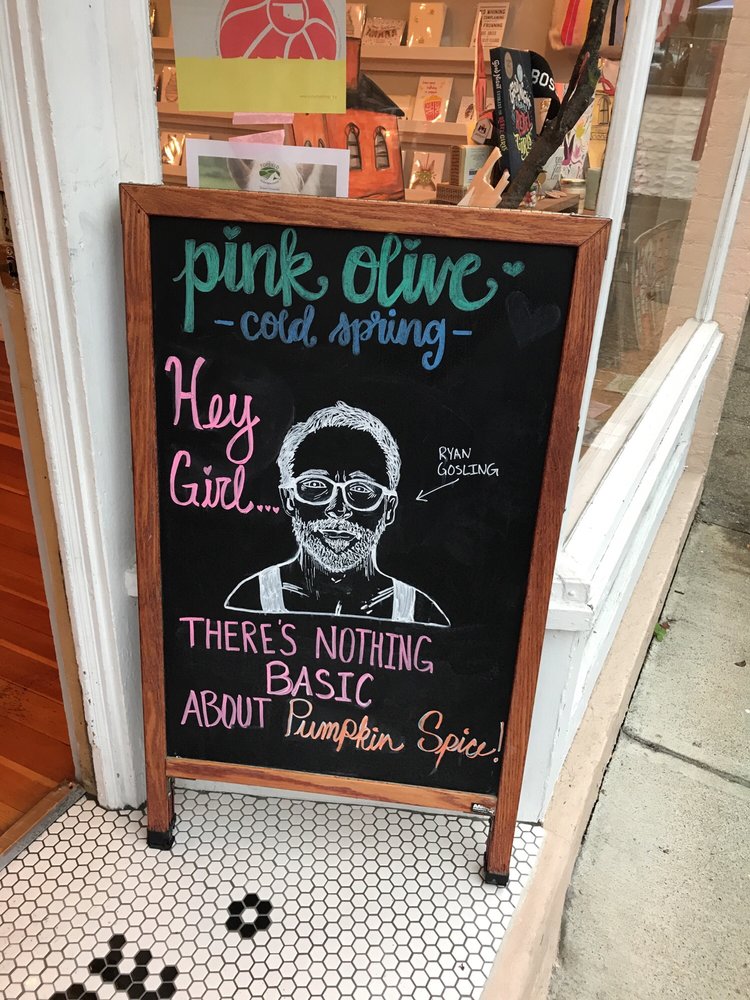 pink olive
- cold spring -
Hey
Girl...
RYAN
GOSLING
THERE'S NOTHING
BASIC
ABOUT Pumpkin Spice!